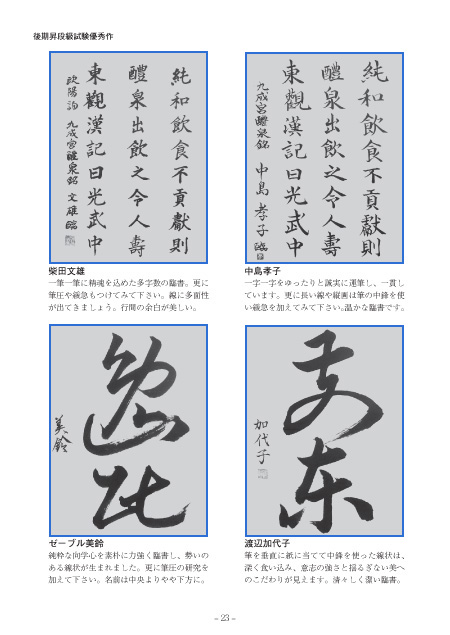 後期昇段級試験優秀作
純和飲食不貢獻則
醴泉出飲之令人壽
東觀漢記曰光武中
欧陽詢 九成宮醴泉銘 文雄臨
柴田文雄
一筆一筆に精魂を込めた多字数の臨書。更に
筆圧や緩急もつけてみて下さい。線に多面性
が出てきましょう。行間の余白が美しい。
純和飲食不貢獻則
醴泉出飲之令人壽
東觀漢記曰光武中
九成宮醴泉銘 中島孝子臨
中島孝子
一字一字をゆったりと誠実に運筆し、一貫し
ています。更に長い線や縦画は筆の中鋒を使
い緩急を加えてみて下さい。温かな臨書です。
美鈴
ゼーブル美鈴
純粋な向学心を素朴に力強く臨書し、勢いの
ある線状が生まれました。更に筆圧の研究を
加えて下さい。名前は中央よりやや下方に。
加代子
渡辺加代子
筆を垂直に紙に当てて中鋒を使った線状は、
深く食い込み、意志の強さと揺るぎない美へ
のこだわりが見えます。清々しく潔い臨書。
- 23 -